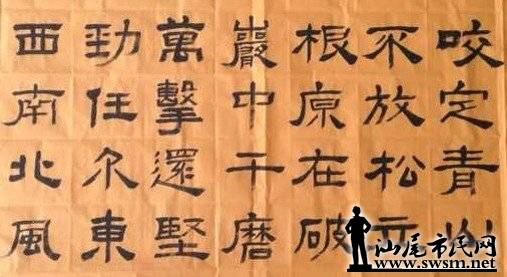 咬定青山
不放松立
根原在破
巖中千磨
萬擊還堅
勁任尔東
西南北風
汕尾市民网
www.swsm.net